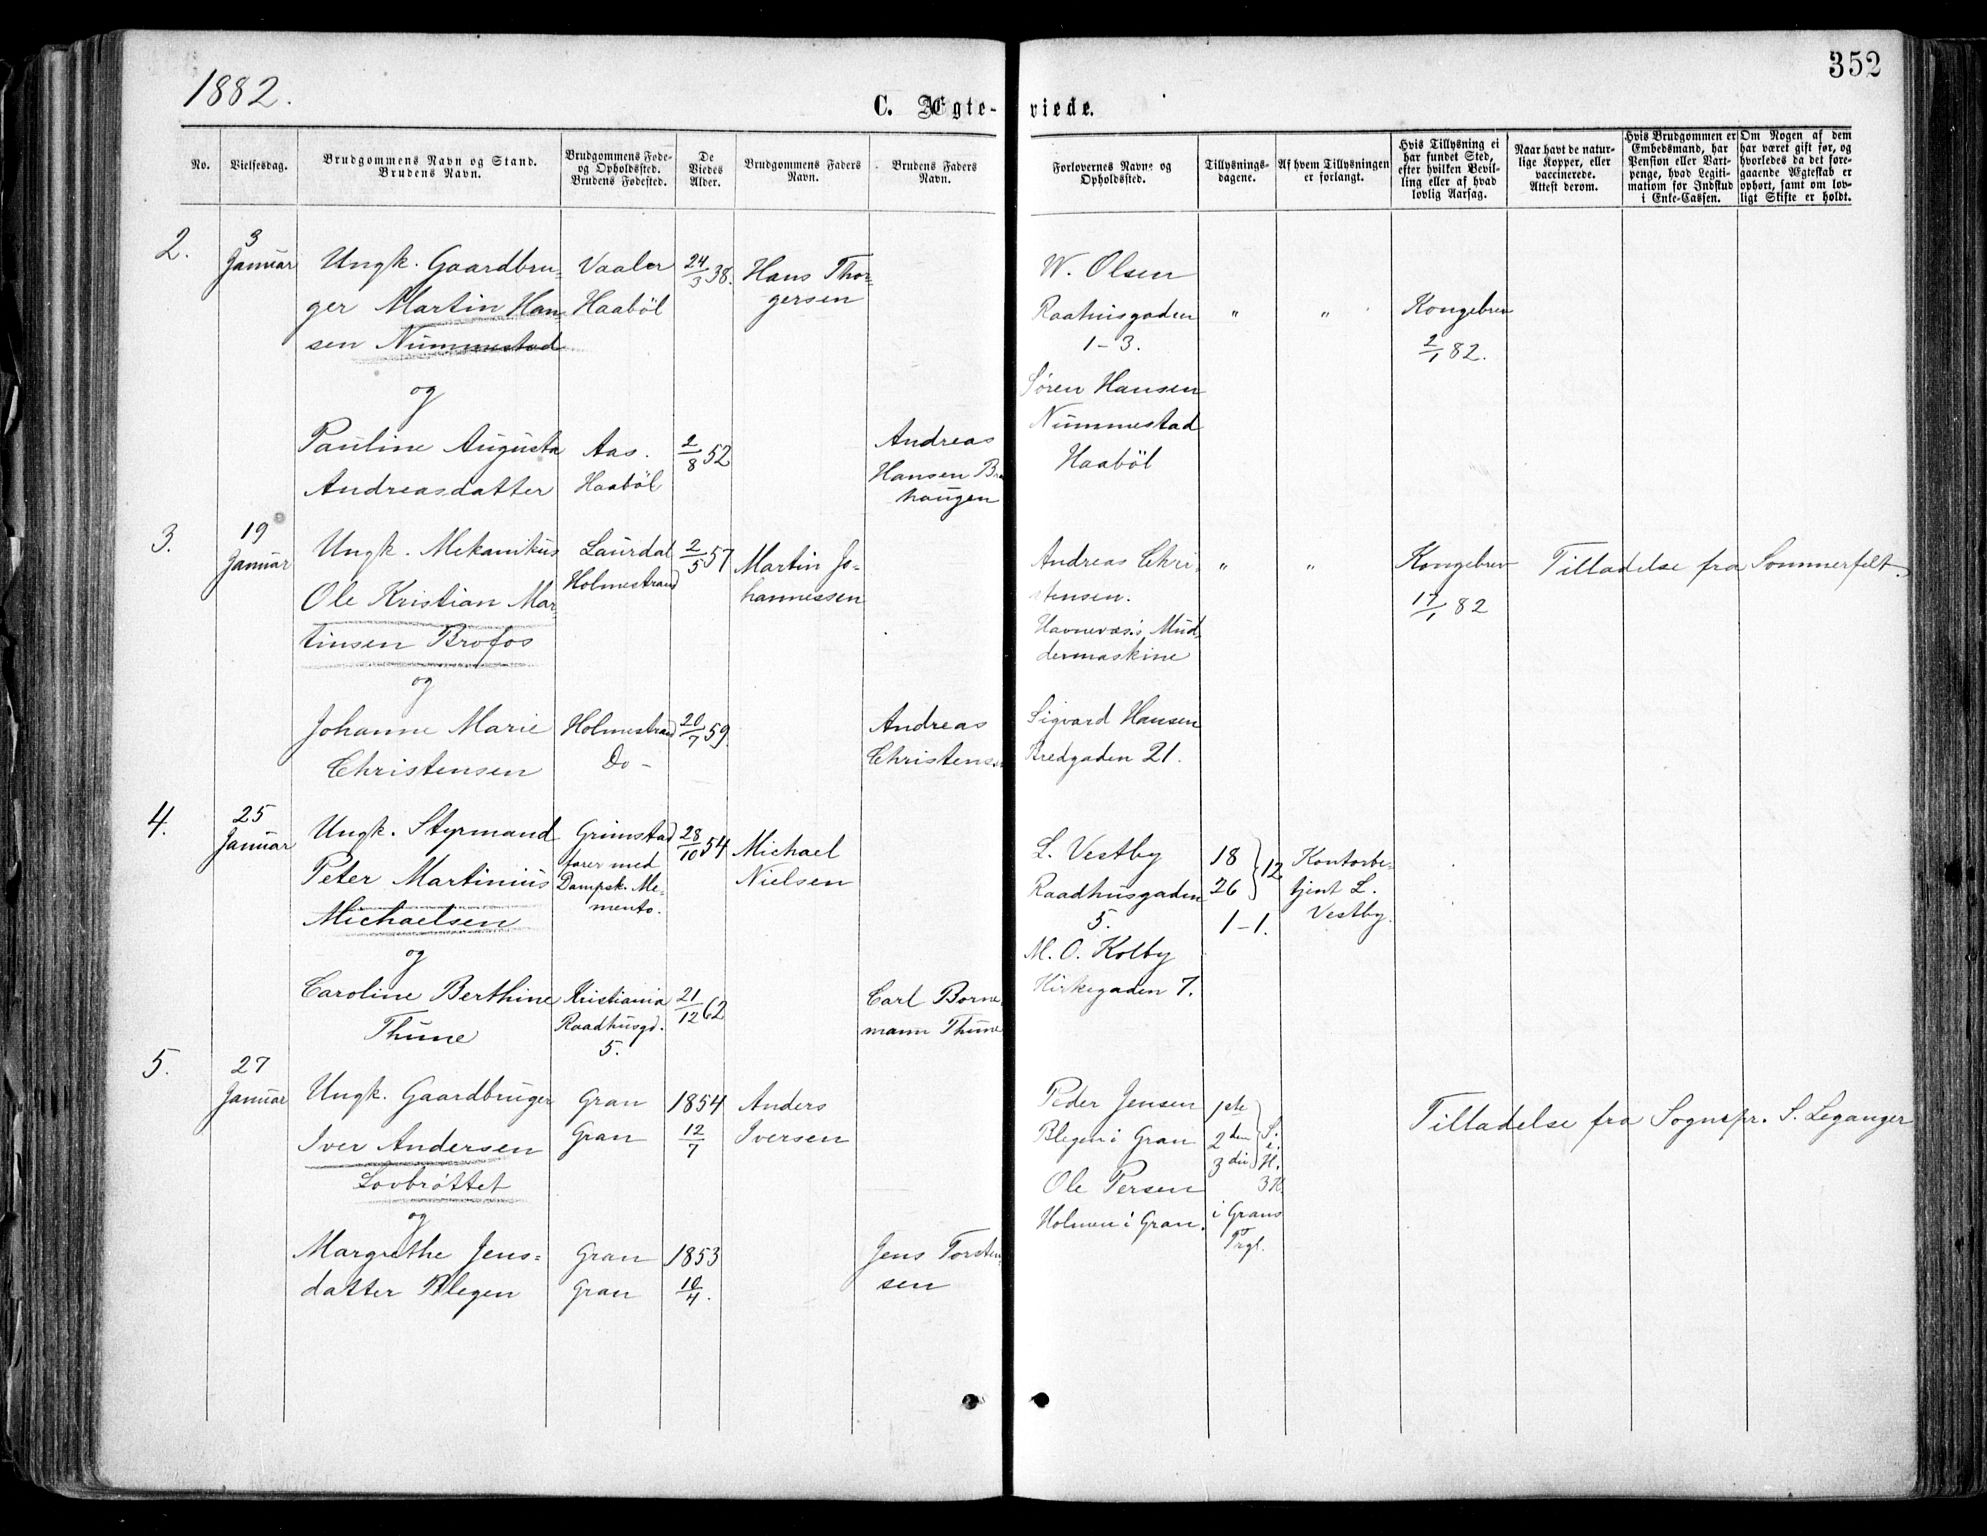 1882.
352
C. Ægte-viede.
No.
Vielsesdag.
Brudgommens Navn og Stand.
Brudens Navn.
Brudgommens Føde-
og Opholdssted.
Brudens Fødested.
De
Viedes
Alder.
Brudgommens Faders
Navn.
Brudens Faders
Navn.
Forlovernes Navne og
Opholdssted.
Tillysnings-
dagene.
Af hvem Tillysningen
er forlangt.
Hvis Tillysning ei
har fundet Sted,
efter hvilken Bevil-
ling eller af hvad
lovlig Aarsag.
Naar havt de natur-
lige Kopper, eller
vaccinerede.
Attest derom.
Hvis Brudgommen er
Embedsmand, har
Pension eller Vart-
penge, hvad Legiti-
mation for Indskud
i Enke-Cassen.
Om Nogen af dem
har været gift før, og
hvorledes da det fore-
gaaende Ægteskab er
ophørt, samt om lov-
ligt Skifte er holdt.
2.
3
Januar
Ungk. Gaardbru-
ger Martin Han-
sen Nummestad
og
Pauline Augusta
Andreasdatter
Vaaler
Haabøl
Aas.
Haabøl
24/3 38.
2/8 52
Hans Thor-
gersen
Andreas
Hansen
haugen
W. Olsen
Raahusgaden
1-3.
Søren Hansen
Nummestad
Haabøl
" "
Kongebrev
2/1 82.
3.
19
Januar
Ungk. Mekanikus
Ole Kristian Mar-
tinsen Brofos
og
Johanne Marie
Christensen
Laurdal
Holmestrand
Holmestrand
Do -
2/5 57
20/7 59
Martin Jo-
hannessen
Andreas
Christensen
Andreas Chri-
stensen.
Havnevæs's Mud-
dermaskine
Sigvard Hansen
Bredgaden 21.
" "
Kongebrev
17/1 82
Tilladelse fra Sommerfelt.
4.
25
Januar
Ungk. Styrmand
Peter Martinius
Michaelsen
og
Caroline Berthine
Thune
Grimstad
farer med
Dampsk. Me-
mento.
Kristiania
Raadhusgd.
5.
28/10 54
21/12 62
Michael
Nielsen
Carl Borne-
mann Thune
L. Vestby
Raadhusgaden
5.
M. O. Kolby
Kirkegaden 7.
18
26 } 12
1-1.
Kontorbe-
tjent L.
Vestby.
5.
27
Januar
Ungk. Gaardbruger
Iver Andersen
Lovbrøttet
og
Margrethe Jens-
datter Blegen
Gran
Gran
Gran
Gran
1854
12/7
1853
10/4.
Anders
Iversen
Jens Torsten-
sen
Peder Jensen
Blegen i Gran
Ole Persen
Holmen i Gran.
1ste
2den
3die
S.
i.
H.
3 K.
i Grans
Prgl.
Tilladelse fra Sognepr. S. Leganger